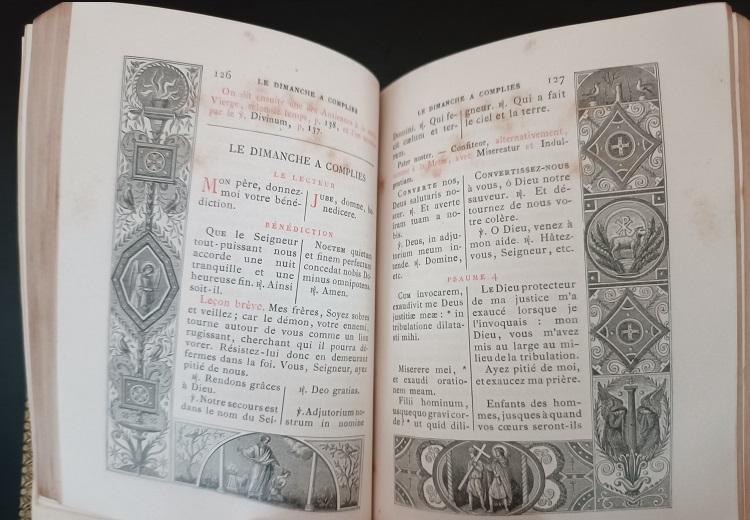 126
LE DIMANCHE A COMPLIES
On dit ensuite une des Antiennes à la
Vierge, selon le temps, p. 138, et l'on
par le ℣. Divinum, p. 137.
LE DIMANCHE A COMPLIES
LE LECTEUR
Mon père, donnez-
moi votre béné-
diction.
Jube, domne, be-
nedicere.
BÉNÉDICTION
Que le Seigneur
tout-puissant nous
accorde une nuit
tranquille et une
heureuse fin. ℟. Ainsi
soit-il.
Noctem quietam
et finem perfectum
concedat nobis Do-
minus omnipotens.
℟. Amen.
Leçon brève. Mes frères, Soyez sobres
et veillez; car le démon, votre ennemi,
tourne autour de vous comme un lion
rugissant, cherchant qui il pourra dé-
vorer. Résistez-lui donc en demeurant
fermes dans la foi. Vous, Seigneur, ayez
pitié de nous.
℟. Rendons grâces
à Dieu.
℣. Notre secours est
dans le nom du Sei-
℟. Deo gratias.
℣. Adjutorium no-
strum in nomine
LE DIMANCHE A COMPLIES
127
Domini. ℟. Qui fe-
cit cœlum et ter-
ram.
gneur. ℟. Qui a fait
le ciel et la terre.
Pater noster. — Confiteor, alternativement,
à la Messe, avec Misereatur et Indul-
gentiam.
Converte nos,
Deus salutaris no-
ster. ℟. Et averte
iram tuam a no-
bis.
℣. Deus, in adju-
torium meum in-
tende. ℟. Domine,
etc.
Convertissez-nous
à vous, ô Dieu notre
sauveur. ℟. Et dé-
tournez de nous vo-
tre colère.
℣. O Dieu, venez à
mon aide. ℟. Hâtez-
vous, Seigneur, etc.
PSAUME 4
Cum invocarem,
exaudivit me Deus
justitiæ meæ: * in
tribulatione dilata-
sti mihi.
Miserere mei, *
et exaudi oratio-
nem meam.
Filii hominum,
usquequo gravi cor-
de? * ut quid dili-
Le Dieu protecteur
de ma justice m'a
exaucé lorsque je
l'invoquais : mon
Dieu, vous m'avez
mis au large au mi-
lieu de la tribulation.
Ayez pitié de moi,
et exaucez ma prière.
Enfants des hom-
mes, jusques à quand
vos cœurs seront-ils